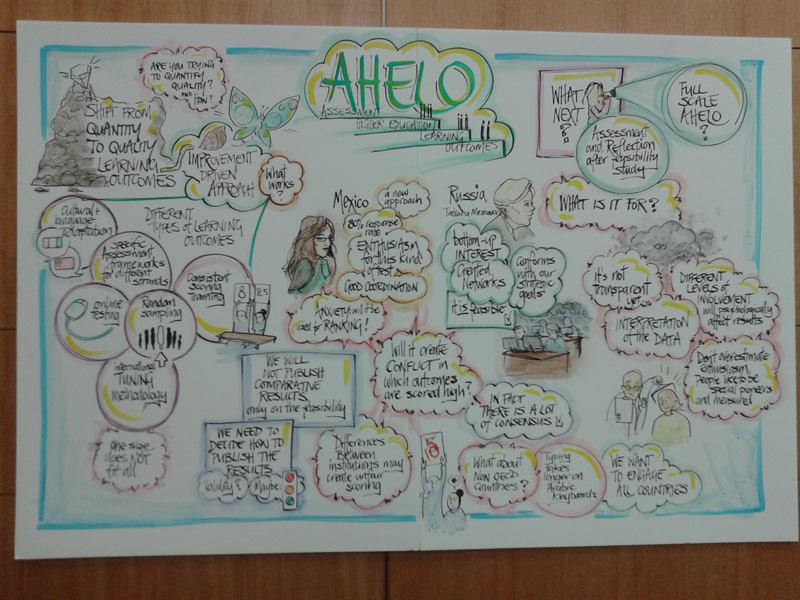 ARE YOU TRYING
TO QUANTIFY
QUALITY?
AND HOW?
SHIFT FROM
QUANTITY
TO QUALITY
LEARNING
OUTCOMES
IMPROVEMENT
DRIVEN
APPROACH
What
works?
AHELO
ASSESSMENT
HIGHER EDUCATION
LEARNING
OUTCOMES
WHAT
NEXT?
FULL
SCALE
AHELO
?
Assessment
and Reflection
after feasibility
study
WHAT IS IT FOR?
Cultural +
language
adaptation
Specific
Assessment
frameworks
for different
strands
DIFFERENT
TYPES OF LEARNING
OUTCOMES
Consistent
scoring
training
8
8.5
online
testing
Random
sampling
international
TUNING
methodology
one size
does NOT
fit all
Mexico
a new
approach
80% response
rate
ENTHUSIASM
for this kind
of test
GOOD COORDINATION
ANXIETY will it be
used for RANKING!
Russia
Tatiana
bottom-up
INTEREST
Created
Networks
it is feasible
Conforms
with our
strategic
goals
It's not
transparent
yet
DIFFERENT
LEVELS OF
INVOLVEMENT
will psychologically
affect results
INTERPRETATION
OF the DATA
Don't overestimate
enthusiasm,
People like to be
special pioneers
and measured
WE WILL
NOT PUBLISH
COMPARATIVE
RESULTS
only on the feasibility
WE NEED TO
DECIDE HOW TO
PUBLISH THE
RESULTS
Validity?
Maybe
Differences
Between
institutions may
create unfair
scoring
Will it create
CONFLICT in
which outcomes
are scored high?
IN FACT
THERE IS A LOT
OF CONSENSUS
What about
NON OECD
COUNTRIES?
Typing
takes
longer on
Arabic
Keyboards
WE WANT
TO ENGAGE
ALL COUNTRIES